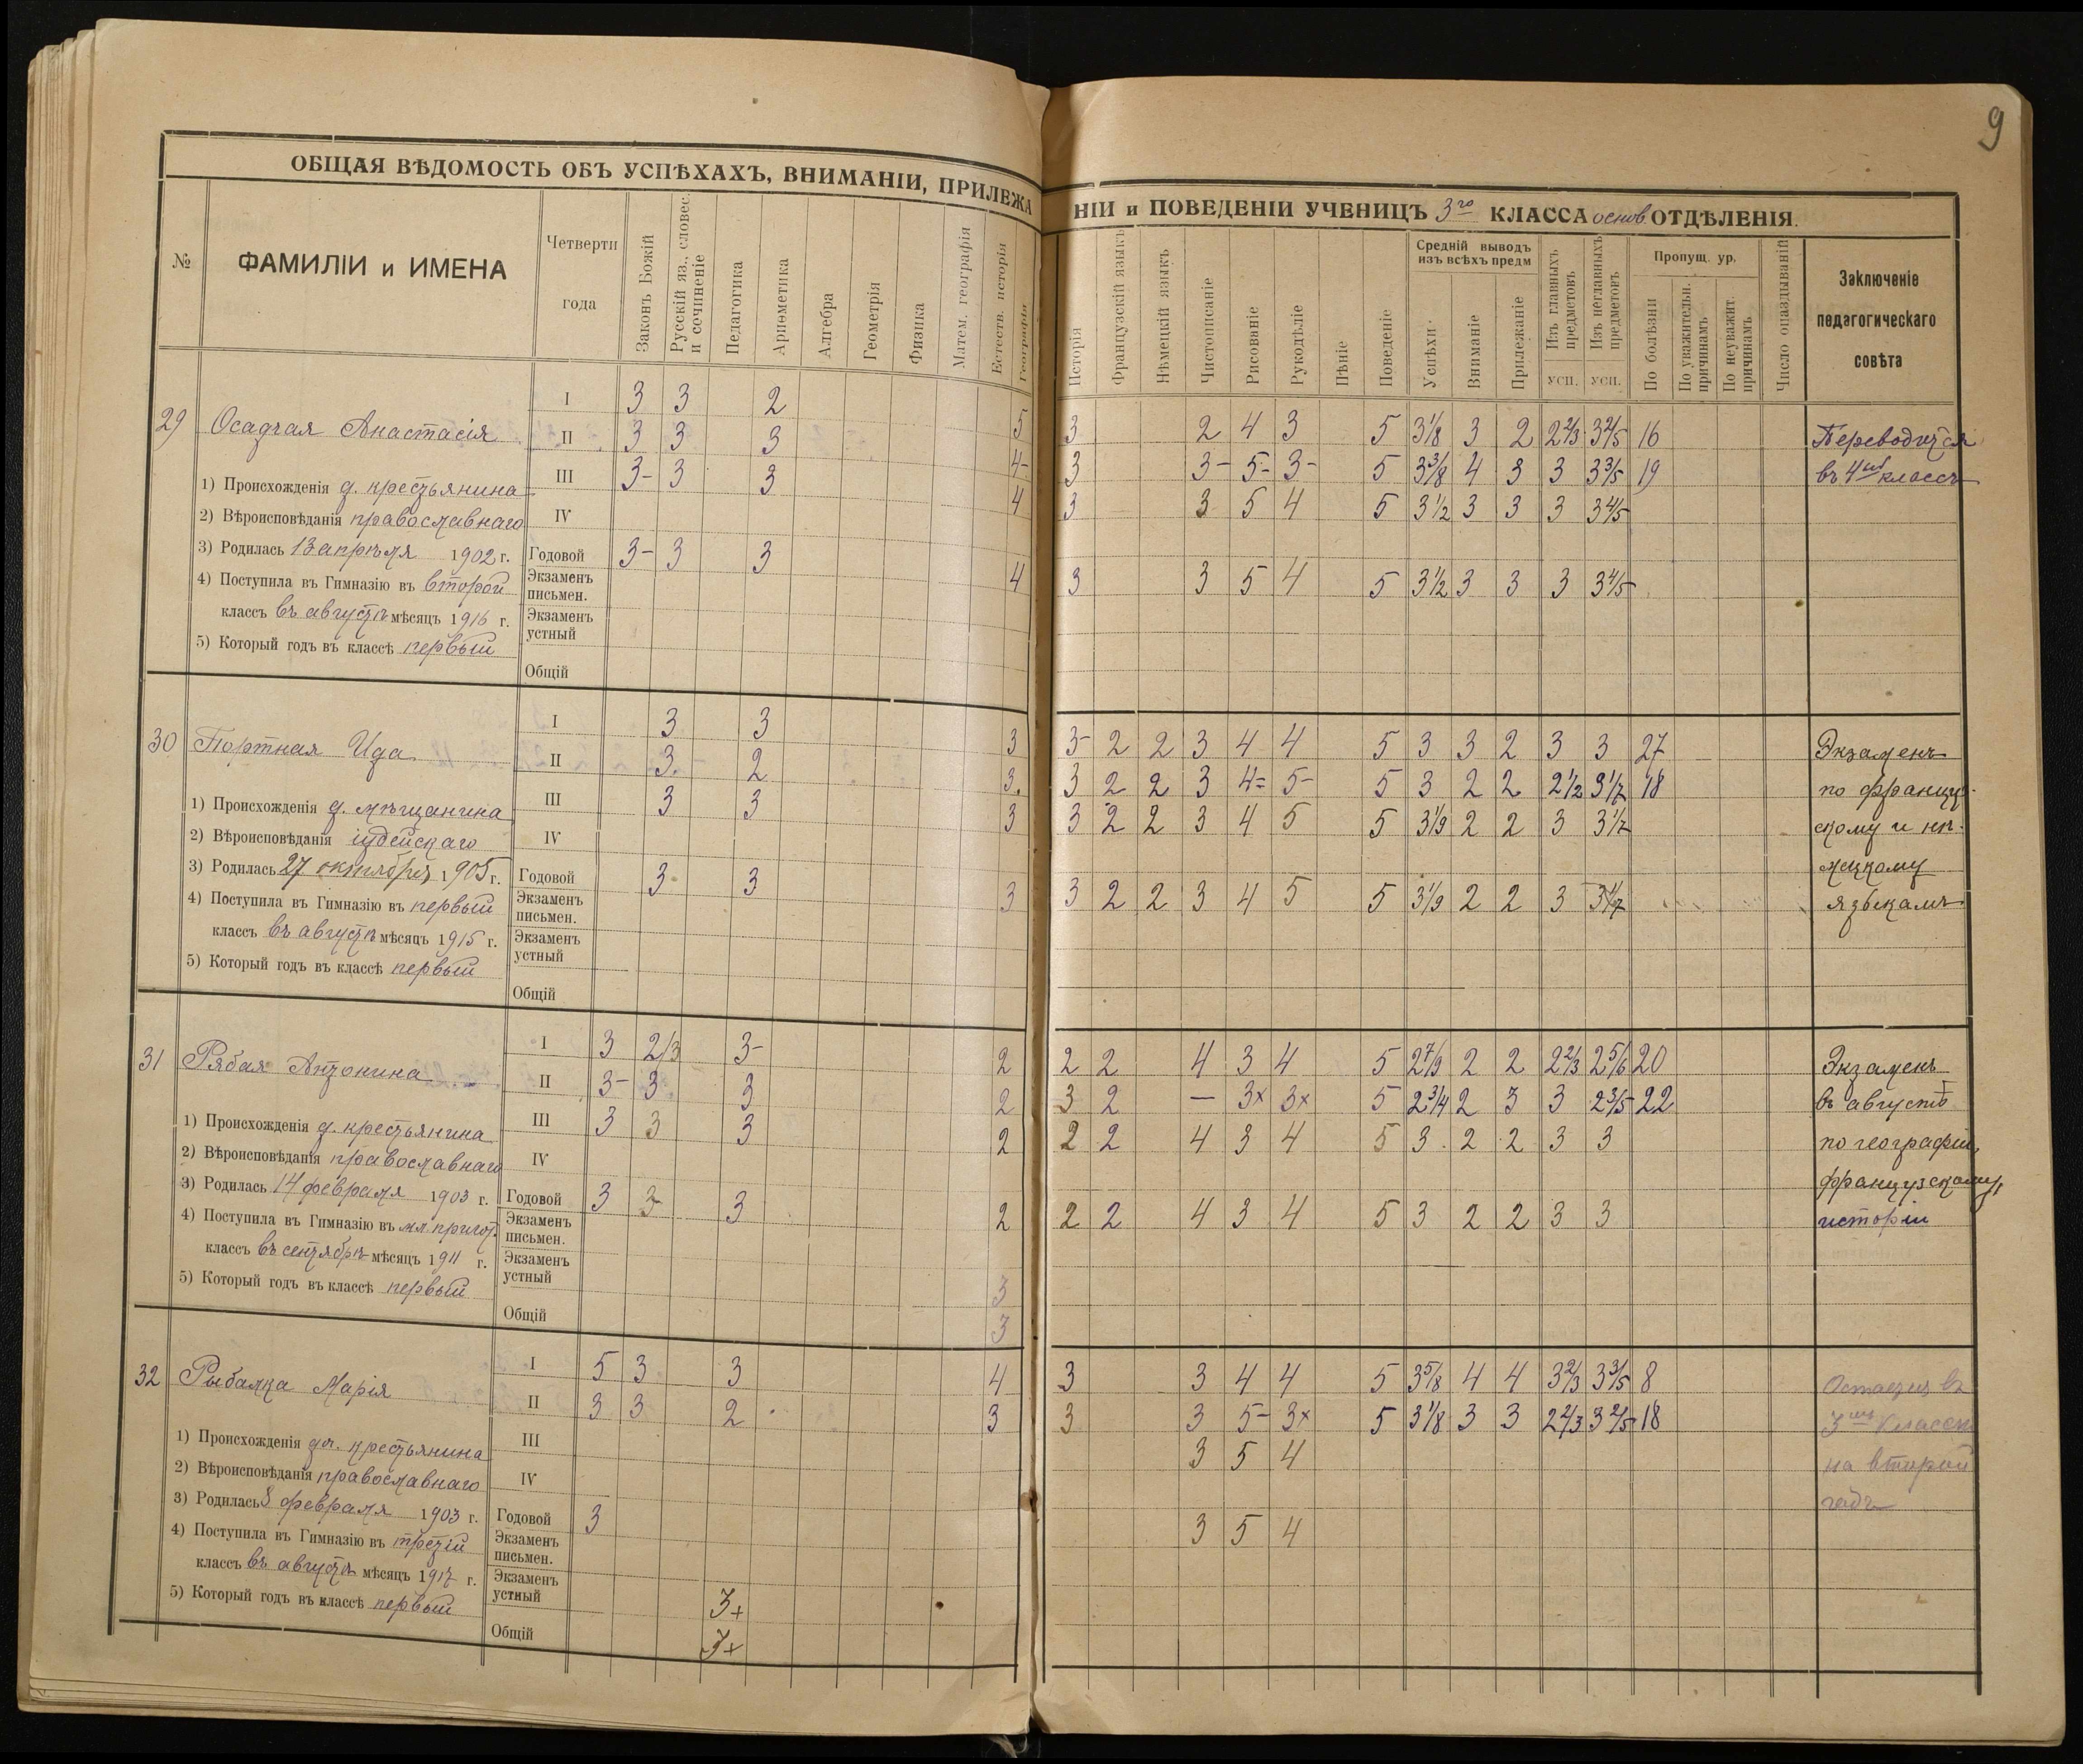 9
ОБЩАЯ ВѢДОМОСТЬ ОБЪ УСПѢХАХЪ, ВНИМАНІИ, ПРИЛЕЖА
НІИ и ПОВЕДЕНІИ УЧЕНИЦЪ 3го КЛАССА основ. ОТДѢЛЕНІЯ.
№
ФАМИЛІИ и ИМЕНА
Четверти
года
Законъ Божій
Русскій яз., словес.
и сочиненіе
Педагогика
Ариѳметика
Алгебра
Геометрія
Физика
Матем. географія
Естеств. исторія
Географія
Исторія
Французскій языкъ
Нѣмецкій языкъ
Чистописаніе
Рисованіе
Рукодѣліе
Пѣніе
Поведеніе
Средній выводъ
изъ всѣхъ предм
Успѣхи
Вниманіе
Прилежаніе
Изъ главныхъ
предметовъ
усп.
Изъ неглавныхъ
предметовъ
усп.
Пропущ. ур.
По болѣзни
По уважительн.
причинамъ
По неуважит.
причинамъ.
Число опаздываній
Заключеніе
педагогическаго
совѣта
29 Осадчая Анастасія
1) Происхожденія д. крестьянина
2) Вѣроисповѣданія православнаго
3) Родилась 13 апрѣля 1902 г.
4) Поступила въ Гимназію въ второй
классъ въ августѣ мѣсяцъ 1916 г.
5) Который годъ въ классѣ первый
I 3 3 2 5 3 2 4 3 5 3 1/8 3 2 2 2/3 3 2/5 16
II 3 3 3 4- 3 3- 5- 3- 5 3 3/8 4 3 3 3 3/5 19
III 3- 3 3 4 3 3 5 4 5 3 1/2 3 3 3 3 4/5
IV
Годовой 3- 3 3 4 3 3 5 4 5 3 1/2 3 3 3 3 4/5
Экзаменъ
письмен.
Экзаменъ
устный
Общій
Переводится
въ 4ый классъ
30 Портная Ида
1) Происхожденія д. мѣщанина
2) Вѣроисповѣданія іудейскаго
3) Родилась 27 октября 1905 г.
4) Поступила въ Гимназію въ первый
классъ въ августѣ мѣсяцъ 1915 г.
5) Который годъ въ классѣ первый
I 3 3 3 3- 2 2 3 4 4 5 3 3 2 3 3 27
II 3. 2 3. 3 2 2 3 4= 5- 5 3 2 2 2 1/2 3 1/7 18
III 3 3 3 3 2 2 3 4 5 5 3 1/9 2 2 3 3 1/7
IV
Годовой 3 3 3 3 2 2 3 4 5 5 3 1/9 2 2 3 3 1/7
Экзаменъ
письмен.
Экзаменъ
устный
Общій
Экзаменъ
по францу-
скому и нѣ-
мецкому
языкамъ
31 Рябая Антонина
1) Происхожденія д. крестьянина
2) Вѣроисповѣданія православнаго
3) Родилась 14 февраля 1903 г.
4) Поступила въ Гимназію въ мл. пригот.
классъ въ сентябрѣ мѣсяцъ 1911 г.
5) Который годъ въ классѣ первый
I 3 2/3 3- 2 2 2 4 3 4 5 2 7/9 2 2 2 2/3 2 5/6 20
II 3- 3 3 2 3 2 — 3× 3× 5 2 3/4 2 3 3 2 3/5 22
III 3 3 3 2 2 2 4 3 4 5 3 2 2 3 3
IV
Годовой 3 3 3 2 2 2 4 3 4 5 3 2 2 3 3
Экзаменъ
письмен.
Экзаменъ
устный 3
Общій 3
Экзаменъ
въ августѣ
по географіи,
французскому,
исторіи
32 Рыбалка Марія
1) Происхожденія дч. крестьянина
2) Вѣроисповѣданія православнаго
3) Родилась 8 февраля 1903 г.
4) Поступила въ Гимназію въ третій
классъ въ августѣ мѣсяцъ 1917 г.
5) Который годъ въ классѣ первый
I 5 3 3 4 3 3 4 4 5 3 5/8 4 4 3 2/3 3 3/5 8
II 3 3 2 3 3 3 5- 3× 5 3 1/8 3 3 2 2/3 3 2/5 18
III 3 5 4
IV
Годовой 3 3 5 4
Экзаменъ
письмен.
Экзаменъ
устный 3+
Общій 3+
Остается въ
3мъ классѣ
на второй
годъ